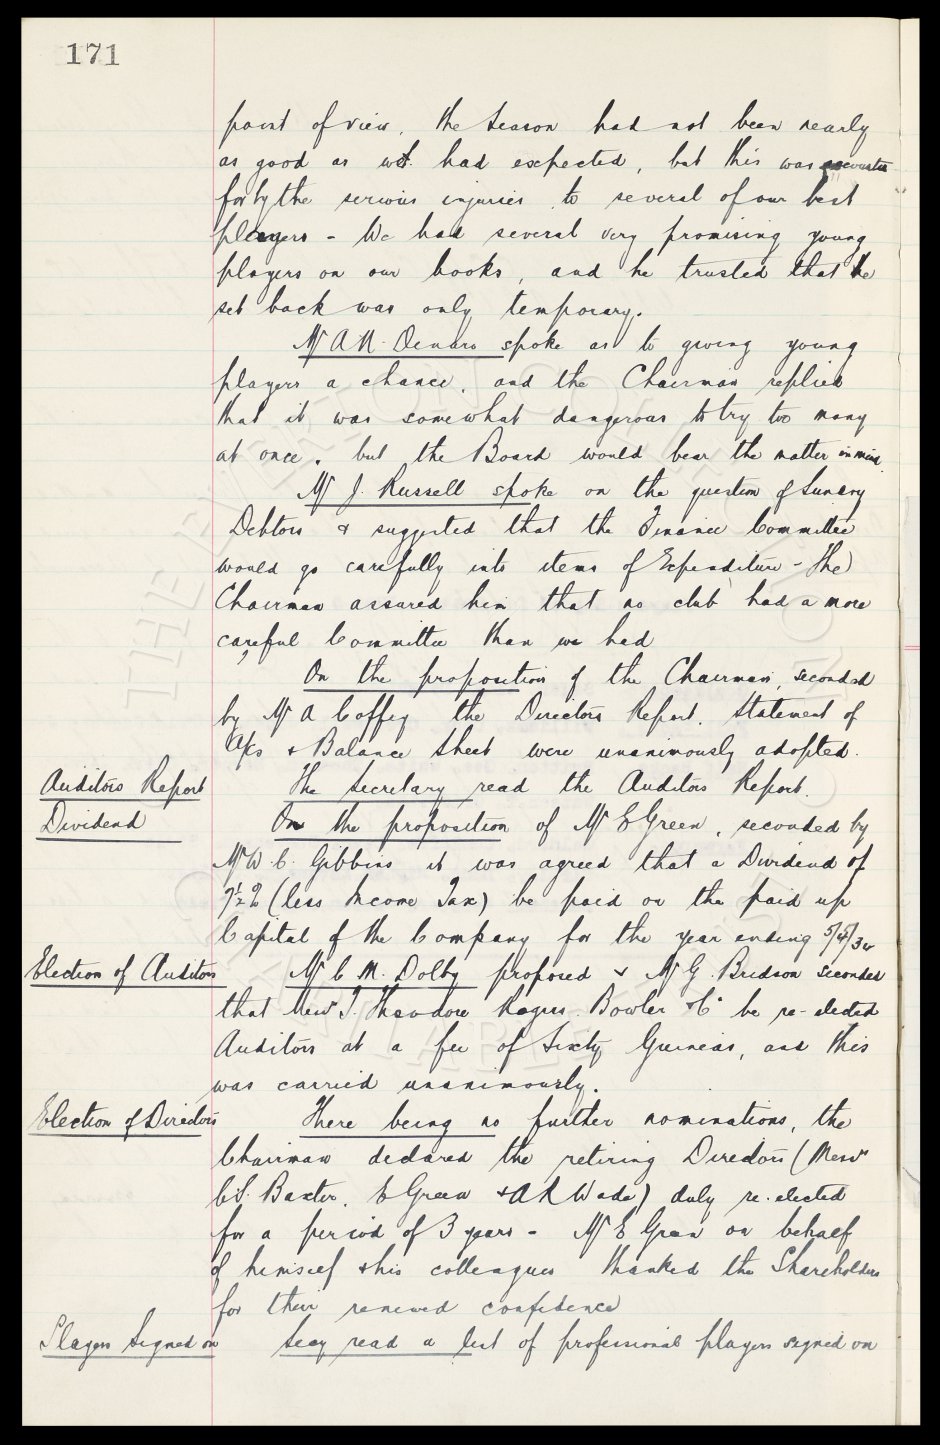 171
point of view, the season had not been nearly
as good as was had expected, but this was accounted
for by the serious injuries to several of our best
players - We had several very promising young
players on our books, and he trusted that the
set back was only temporary.
Mr A.N. Denaro spoke as to giving young
players a chance, and the Chairman replied
that it was somewhat dangerous to try too many
at once, but the Board would bear the matter in mind.
Mr J. Russell spoke on the question of Sundry
Debtors & suggested that the Finance Committee
would go carefully into items of Expenditure - the
Chairman assured him that no club had a more
careful Committee than we had
On the proposition of the Chairman, seconded
by Mr A Coffey the Directors Report, Statement of
A/cs & Balance Sheet were unanimously adopted.
Auditors Report The Secretary read the Auditors Report.
Dividend On the proposition of Mr E Green, seconded by
Mr W.C. Gibbins it was agreed that a Dividend of
7½% (less Income Tax) be paid on the paid up
Capital of the Company for the year ending 5/5/30
Election of Auditors Mr C.M. Dolby proposed & Mr G. Bridson seconded
that Messrs T. Theodore Rogers Bowler & Co be re-elected
Auditors at a fee of Sixty Guineas, and this
was carried unanimously.
Election of Directors There being no further nominations, the
Chairman declared the retiring Directors (Messrs
C.S. Baxter, E Green & A R Wade) duly re-elected
for a period of 3 years - Mr E Green on behalf
of himself & his colleagues thanked the Shareholders
for their renewed confidence
Players Signed on Secy read a list of professional players signed on
THE EVERTON COLLECTION
CHARITABLE TRUST